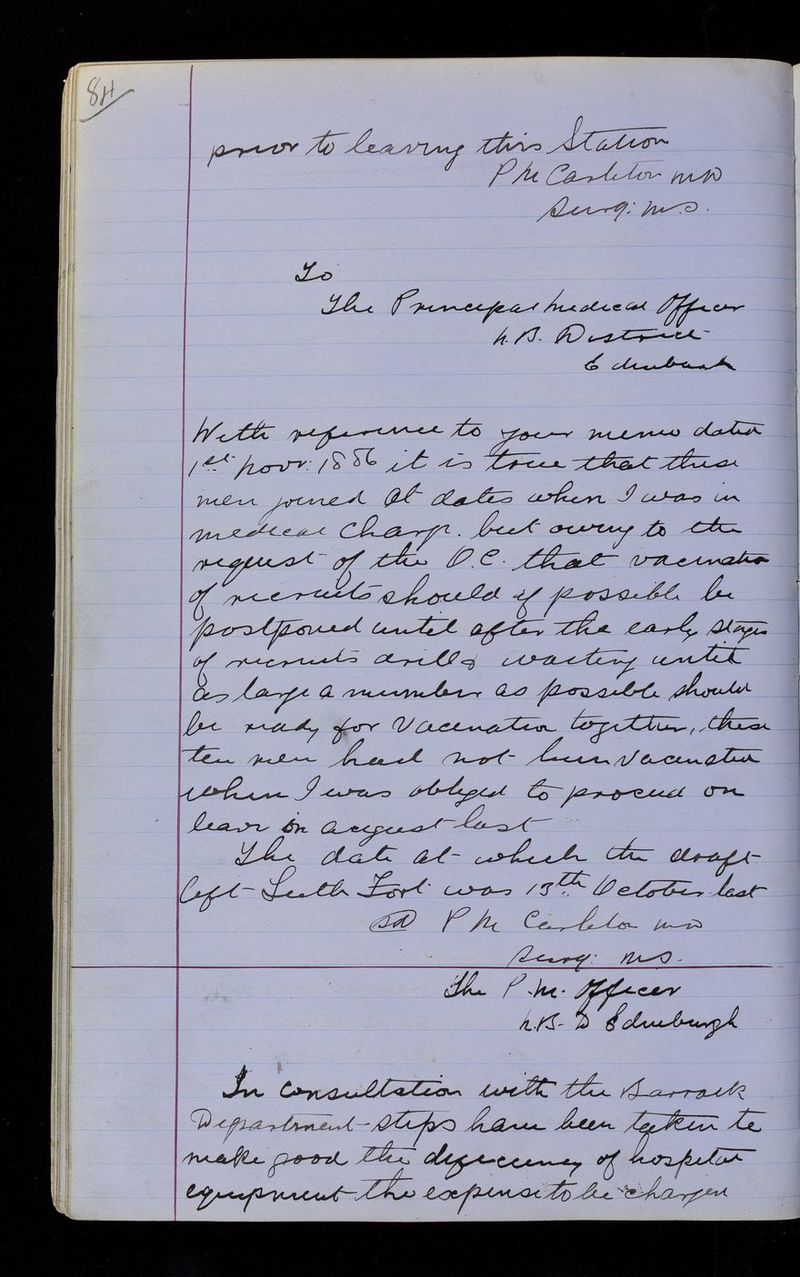 84
prior to leaving this Station
P M Carleton MD
Surg: M.S.
To
The Principal Medical Officer
N.B. District
Edinburgh
With reference to your memo dated
1st Novr: 1886 it is true that these
men joined at dates when I was in
medical charge. but owing to the
request of the O.C. that vaccination
of recruits should if possible be
postponed until after the early stages
of recruits drills waiting until
as large a number as possible should
be ready for Vaccination together, these
ten men had not been Vaccinated
when I was obliged to proceed on
leave in august last
The date at which the draft
left Leith Fort was 13th October last
Sd P M Carleton MD
Surg: MS.
The P.M. Officer
N.B. D Edinburgh
In consultation with the Barrack
Department steps have been taken to
make good the deficiency of hospital
equipment the expense to be charged